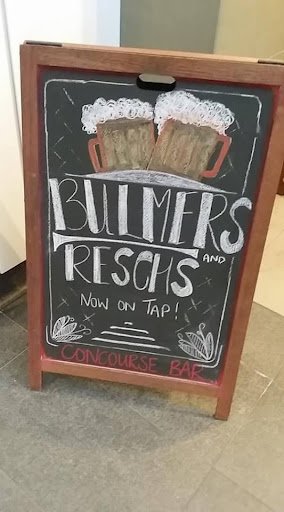 BULMERS
AND
RESCHS
NOW ON TAP!
CONCOURSE BAR